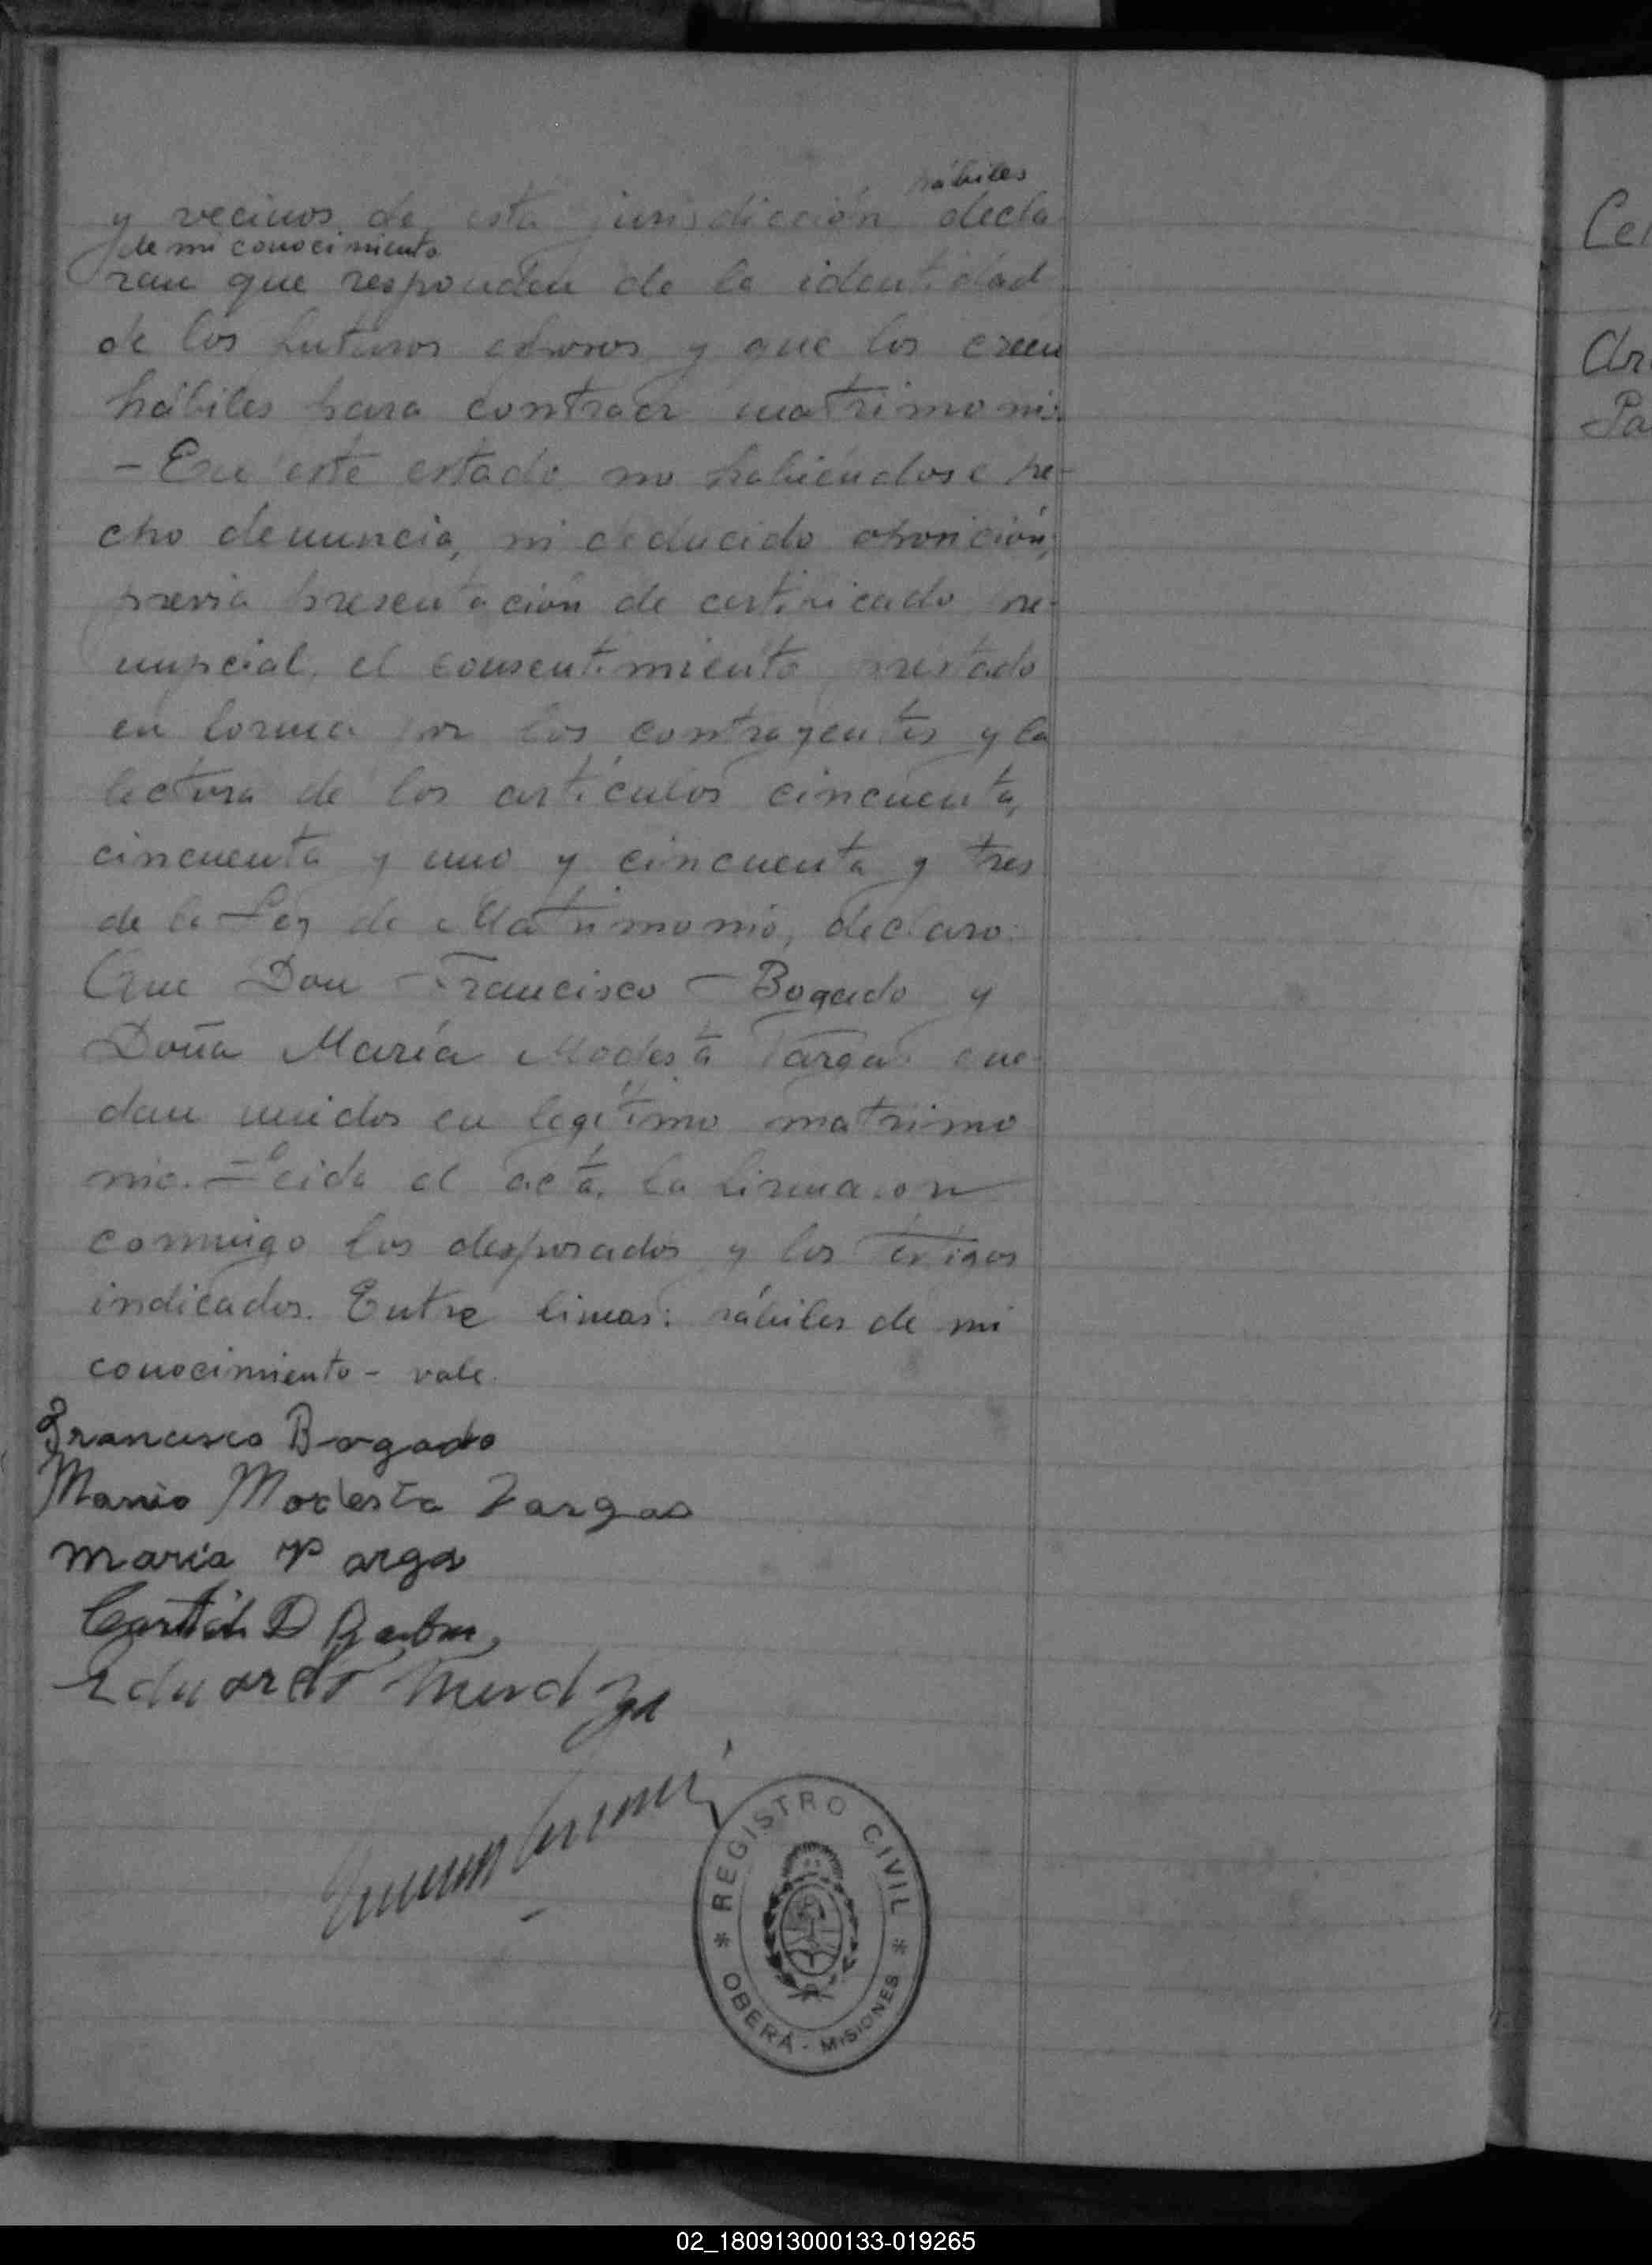 hábiles
y vecinos de esta jurisdicción decla
de mi conocimiento
ran que responden de la identidad
de los futuros esposos y que los creen
hábiles para contraer matrimonio.
- En este estado no habiéndose he-
cho denuncia, ni deducido oposición,
previa presentación de certificado pre-
nupcial, el consentimiento prestado
en forma por los contrayentes y la
lectura de los artículos cincuenta,
cincuenta y uno y cincuenta y tres
de la Ley de Matrimonio, declaro:
Que Don Francisco Bogado y
Doña María Modesta Vargas que-
dan unidos en legítimo matrimo
nio. - Leida el acta, la firmaron
conmigo los desposados y los testigos
indicados. Entre lineas: hábiles de mi
conocimiento - vale.
Francisco Bogado
Maria Modesta Vargas
Maria Varga
D
Eduardo Mendoza
REGISTRO CIVIL
OBERÁ - MISIONES
Ce
Ar
Pa
02_180913000133-019265